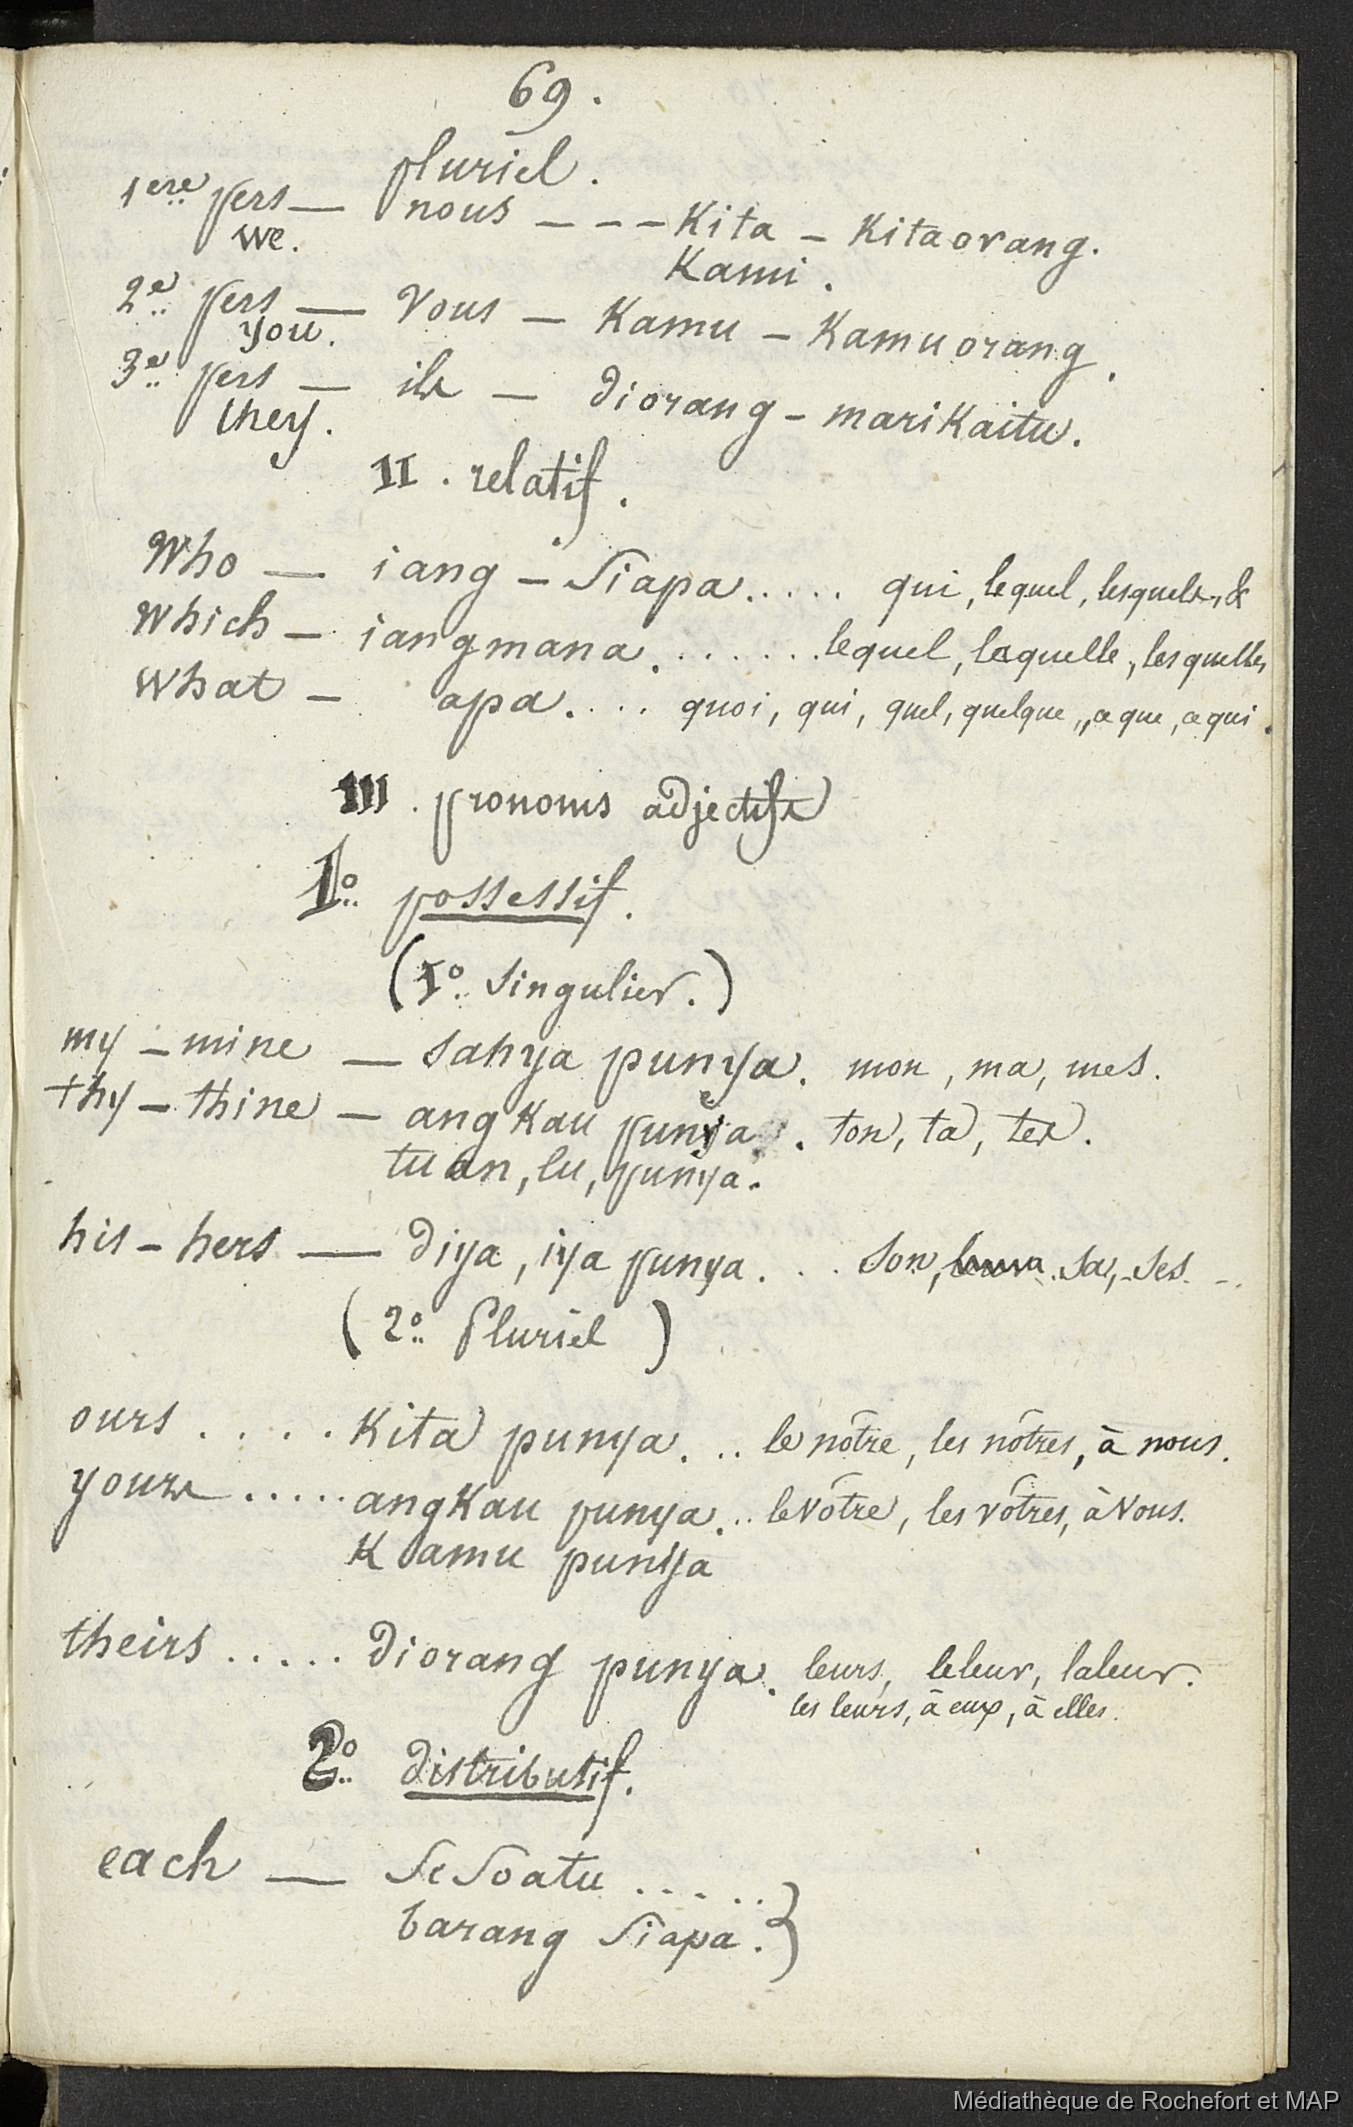 69.
pluriel.
1ere pers — nous - - - Kita - Kitaorang.
we.
Kami.
2e pers — Vous — Kamu - Kamuorang.
you.
3e pers — ils — diorang - mariKaitu.
they.
II. relatif.
Who — iang - Siapa..... qui, lequel, lesquels, &
Which — iangmana....... lequel, laquelle, lesquelles
What — apa.... quoi, qui, quel, quelque, ce que, ce qui.
III. pronoms adjectifs
1o possessif.
(1o. Singulier.)
my - mine — sahya punya. mon, ma, mes.
thy - thine — angKau punya. ton, ta, tes.
tuan, lu, punya.
his - hers — diya, iya punya... son, sa, ses.
(2o. Pluriel)
ours.... Kita punya... le nôtre, les nôtres, à nous.
yours..... angKau punya... le vôtre, les vôtres, à vous.
Kamu punya
theirs..... diorang punya. leurs, le leur, la leur.
les leurs, à eux, à elles.
2o. distributif.
each — SeSoatu.....}
barang Siapa.}
Médiathèque de Rochefort et MAP